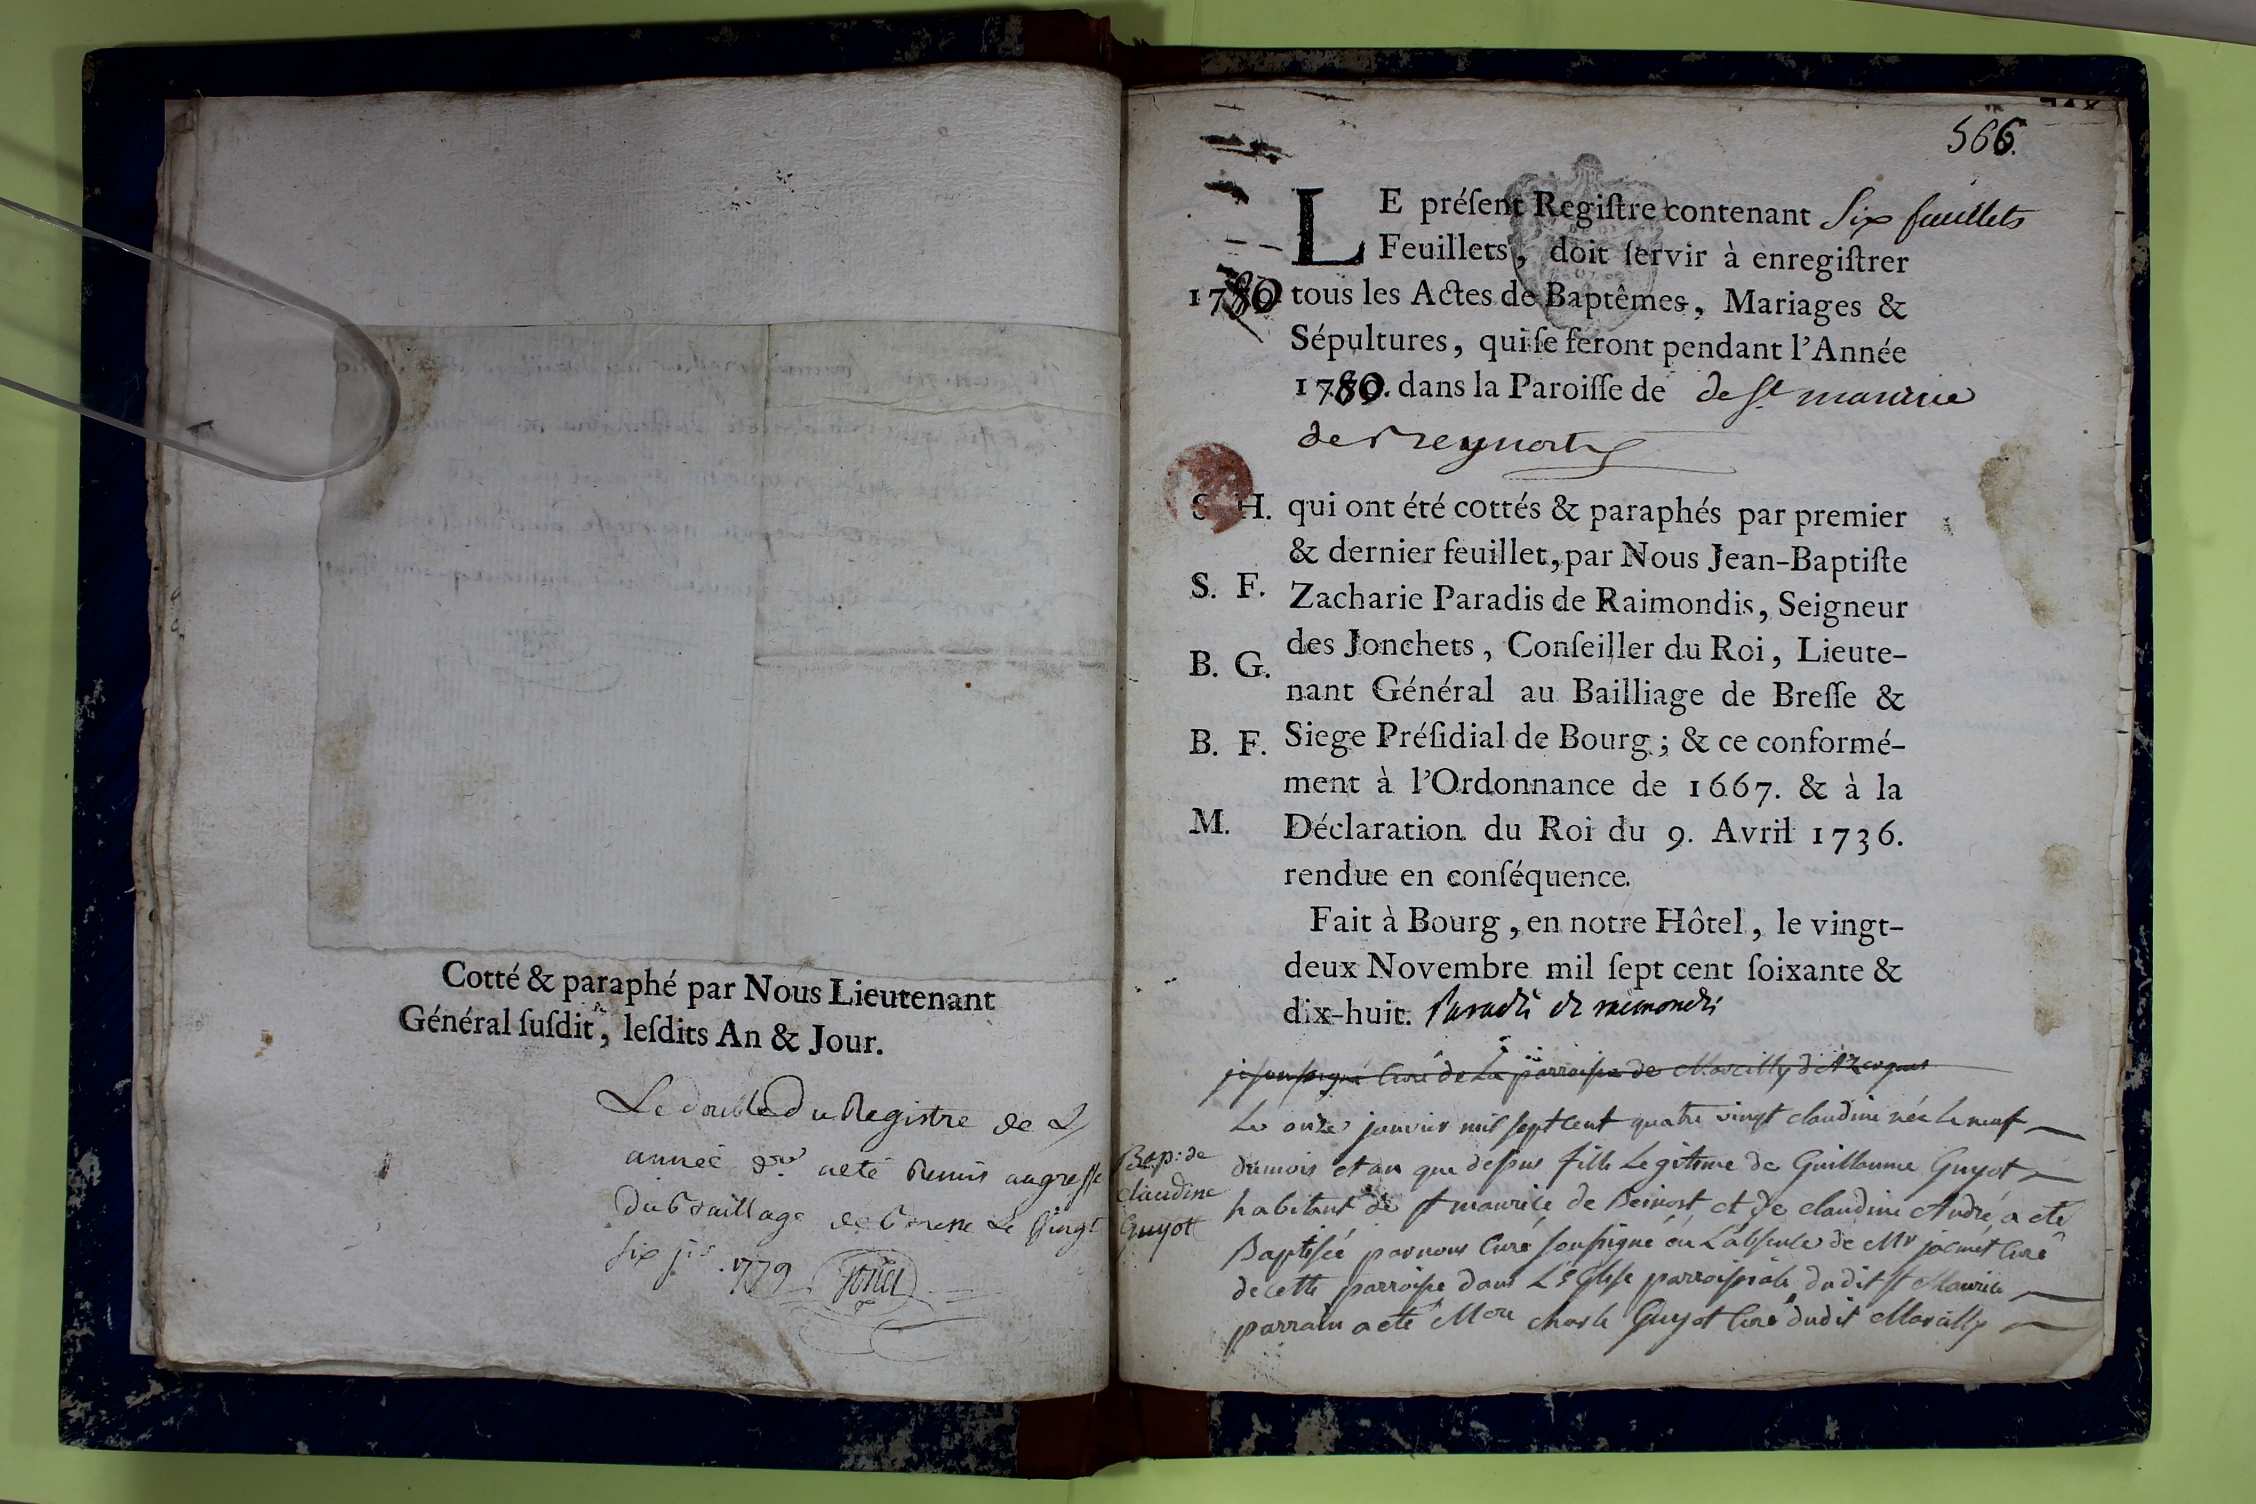 Cotté & paraphé par Nous Lieutenant
Général ſuſdit, leſdits An & Jour.
Le double du Registre de L
année d.te a eté Remis au greffe
du Bailliage de Bresse Le Vingt
six 1779
566.
LE préſent Regiſtre contenant Six feuillets
Feuillets, doit ſervir à enregiſtrer
1780. tous les Actes de Baptêmes, Mariages &
Sépultures, qui ſe feront pendant l'Année
1780. dans la Paroiſſe de de St maurice
de Beynost
S. H. qui ont été cottés & paraphés par premier
& dernier feuillet, par Nous Jean-Baptiſte
S. F. Zacharie Paradis de Raimondis, Seigneur
des Jonchets, Conſeiller du Roi, Lieute-
B. G. nant Général au Bailliage de Breſſe &
B. F. Siege Préſidial de Bourg; & ce conformé-
ment à l'Ordonnance de 1667. & à la
M. Déclaration du Roi du 9. Avril 1736.
rendue en conſéquence.
Fait à Bourg, en notre Hôtel, le vingt-
deux Novembre mil ſept cent ſoixante &
dix-huit. Paradis de raimondis
je soussigné Curé de La parroisse de Marcilly d'Azergues
Le onze janvier mil sept cent quatre vingt claudine née le neuf
Bap: de
claudine
Guyot
du mois et an que dessus fille Legitime de Guillaume Guyot
habitant de st maurice de Beinost et de claudine André, a eté
Baptisée par nous Curé soussigné en L'absence de Mr jacmet Curé
de cette parroisse dans L'Eglise parroissiale dudit st Maurice
parrain a eté Mre charle Guyot Curé dudit Marcilly